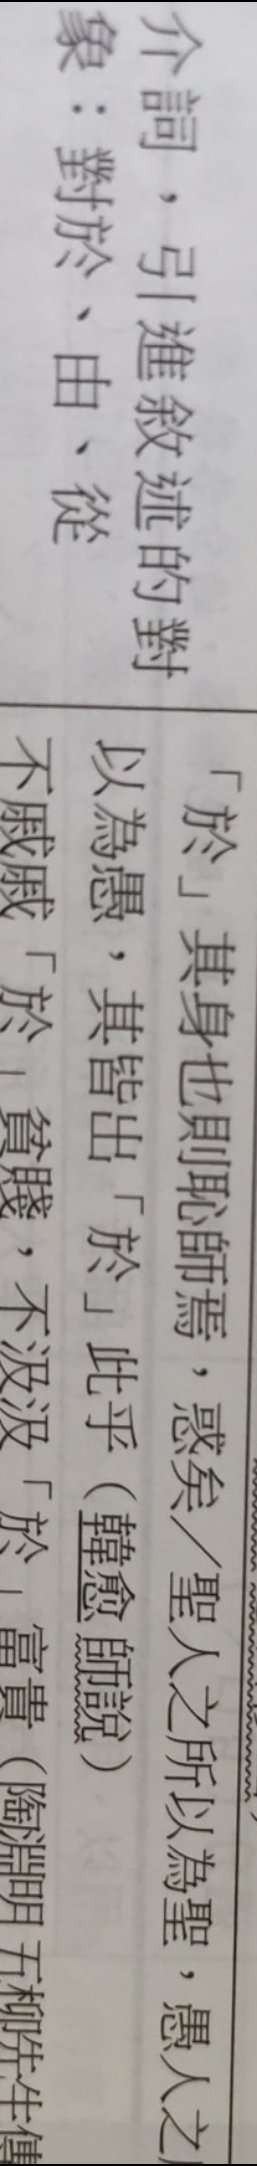 介詞，引進敘述的對
象：對於、由、從
「於」其身也則恥師焉，惑矣／聖人之所以為聖，愚人之
以為愚，其皆出「於」此乎（韓愈 師說）
不戚戚「於」貧賤，不汲汲「於」富貴（陶淵明 五柳先生傳